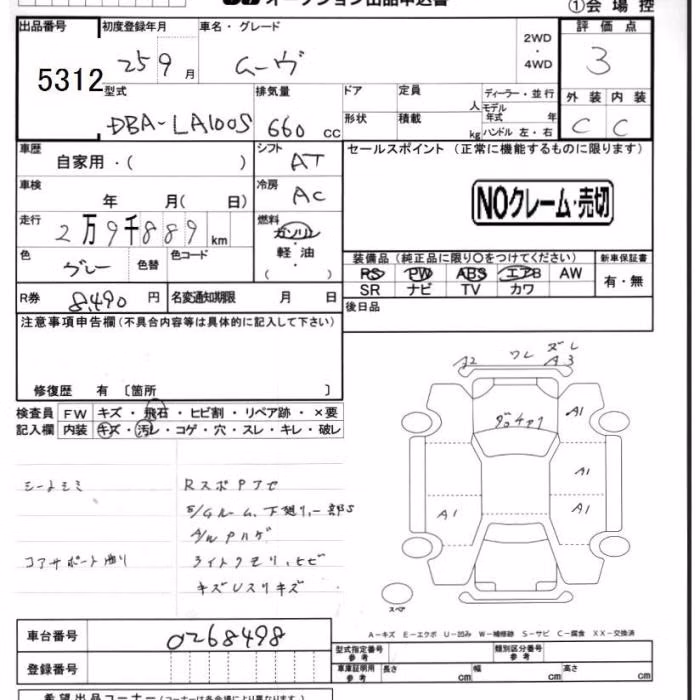 オークション出品申込書
①会場控
出品番号
5312
初度登録年月
25 9月
車名・グレード
ムーヴ
2WD
・
4WD
評価点
3
型式
DBA-LA100S
排気量
660 cc
ドア
定員
人
形状
積載
kg
ディーラー・並行
モデル年式 年
ハンドル 左・右
外装 内装
C C
車歴
自家用・( )
シフト
AT
セールスポイント (正常に機能するものに限ります)
NOクレーム・売切
車検
年 月( 日)
冷房
AC
走行
2万9千889km
燃料
ガソリン
・
軽油
・
( )
色
グレー
色替
色コード
装備品 (純正品に限り○をつけてください)
新車保証書
PS PW ABS エアB AW
SR ナビ TV カワ
有・無
R券
8,490円
名変通知期限 月 日
後日品
注意事項申告欄(不具合内容等は具体的に記入して下さい)
修復歴 有 〔箇所 〕
検査員記入欄
FW キズ・飛石・ヒビ割・リペア跡・×要
内装 キズ・汚レ・コゲ・穴・スレ・キレ・破レ
シートシミ
RスポPフセ
S/Gルーム、下廻リ一部S
A/W Pハゲ
ライトクモリ、ヒビ
キズUスリキズ
A2 ワレ ズレ A3
A1
A1
A1
A1
スペア
A-キズ E-エクボ U-凹み W-補修跡 S-サビ C-腐食 XX-交換済
車台番号
0268498
登録番号
型式指定番号
参考
類別区分番号
参考
車庫証明用
参考
長さ cm
幅 cm
高さ cm
希望出品コーナー (コーナーは各会場により異なります)